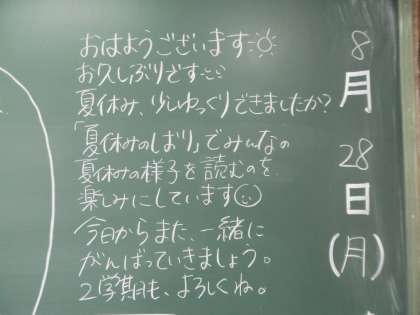 おはようございます
お久しぶりです
夏休み、少しゆっくりできましたか?
「夏休みのしおり」でみんなの
夏休みの様子を読むのを
楽しみにしています
今日からまた、一緒に
がんばっていきましょう。
2学期も、よろしくね。
8月28日(月)